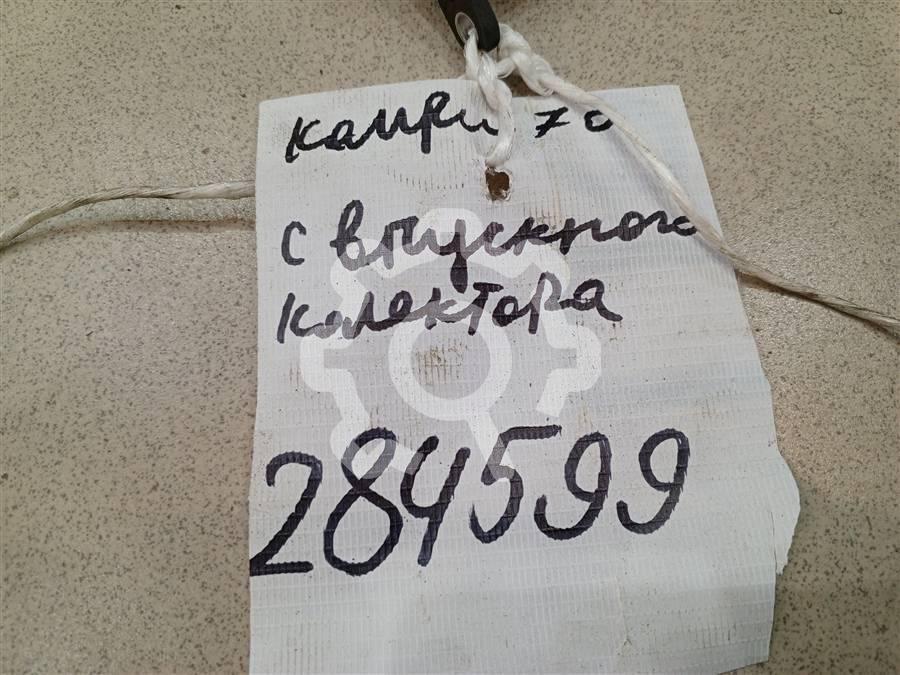 камри 70
с впускного
колектора
284599